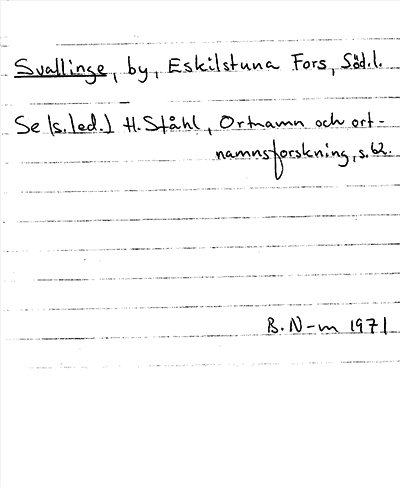 Svallinge, by, Eskilstuna Fors, Söd.l.
Se (s.led.) H. Ståhl, Ortnamn och ort-
namnsforskning, s. 62.
B. N-m 1971